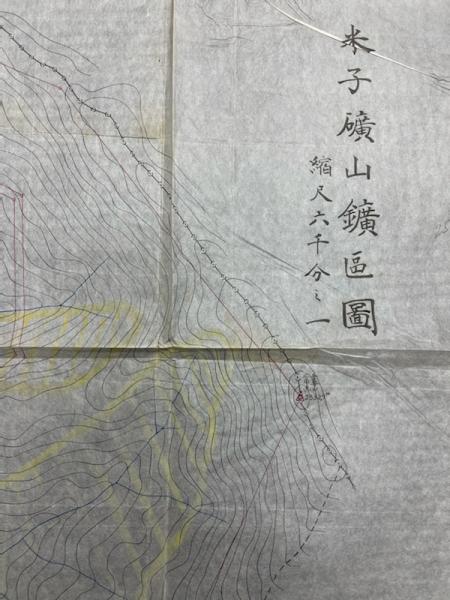 米子礦山鑛區圖
縮尺六千分之一